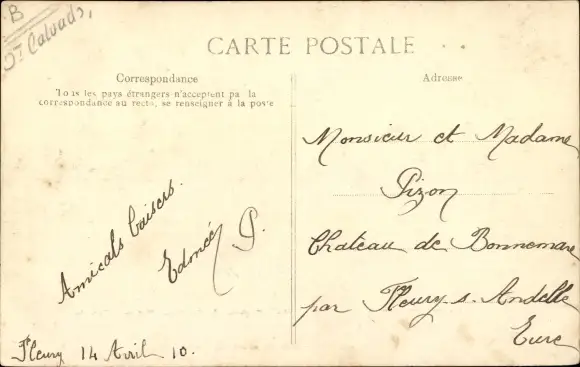 B
Dt Calvados,
CARTE POSTALE
Correspondance
Tous les pays étrangers n'acceptent pas la
correspondance au recto, se renseigner à la poste
Amicals baisers.
Edmée P.
Fleury 14 Avril 10.
Adresse
Monsieur et Madame
Pizon
Chateau de Bonnemare
par Fleury s. Andelle
Eure